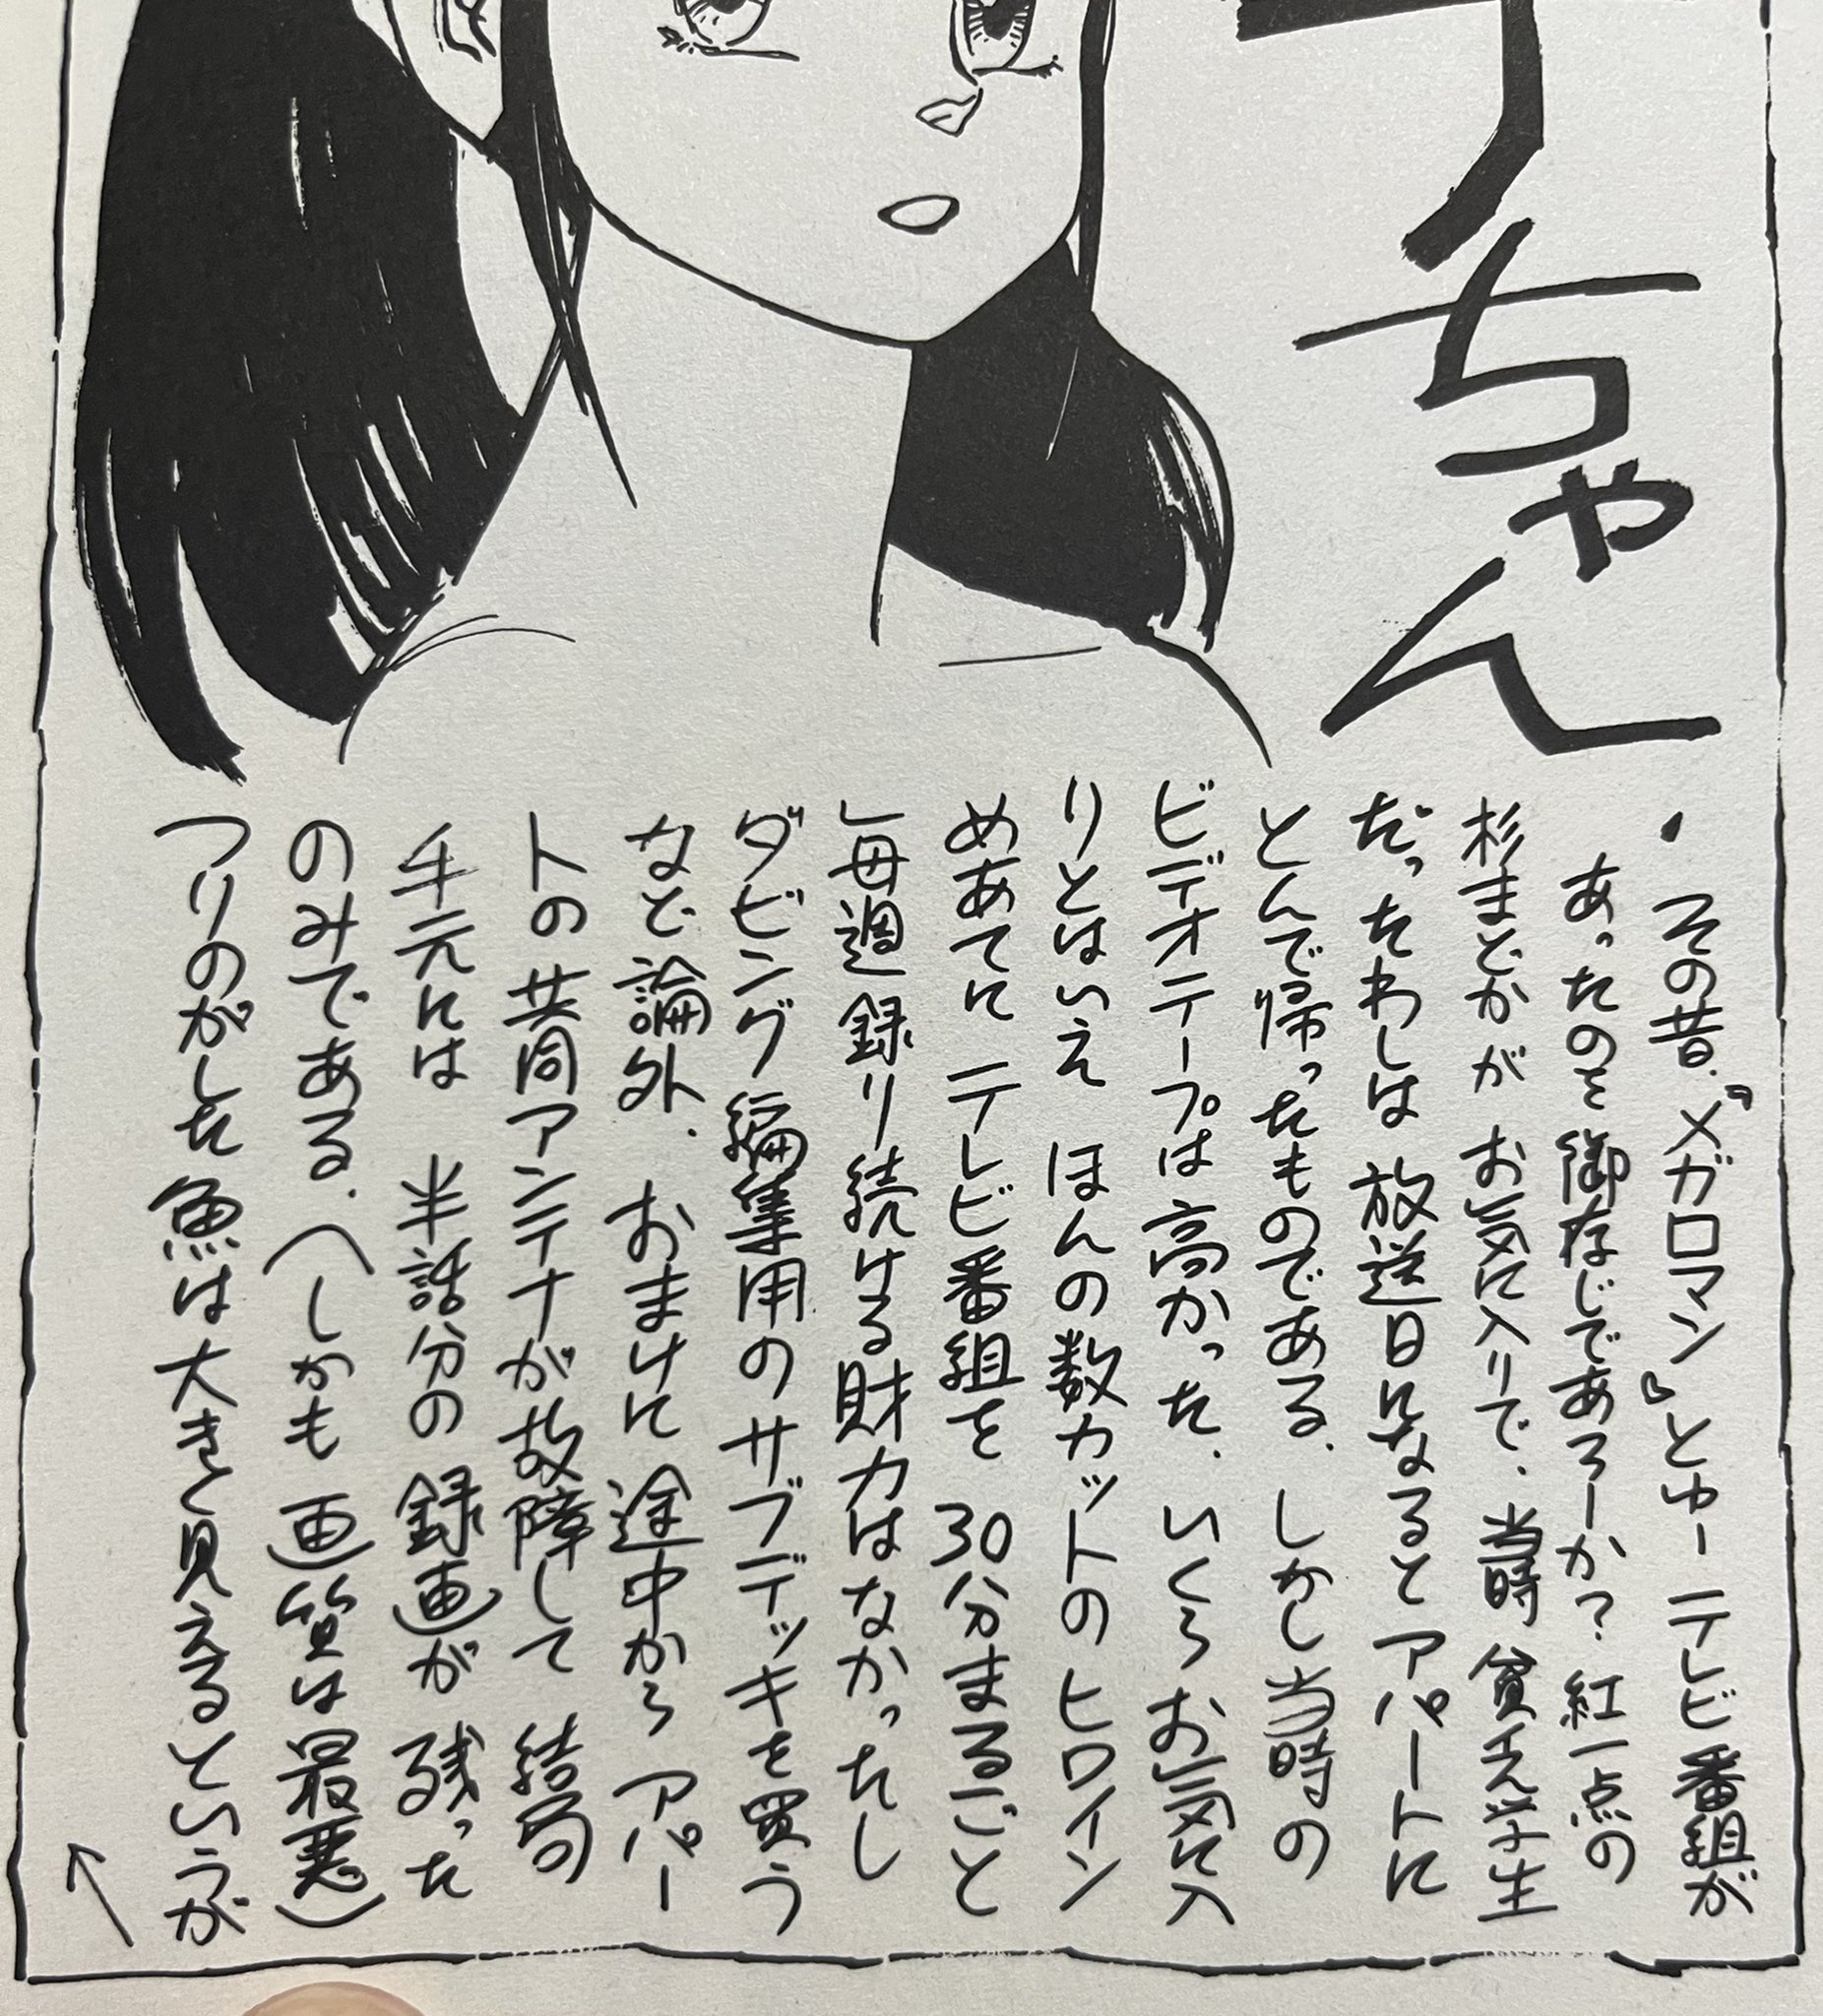 ちゃん
・その昔、『メガロマン』とゆーテレビ番組が
あったのを御存じであろーか？紅一点の
杉まどかが お気に入りで、当時 貧乏学生
だったわしは 放送日になると アパートに
とんで帰ったものである。しかし当時の
ビデオテープは高かった。いくらお気に入
りとはいえ ほんの数カットのヒロイン
めあてに テレビ番組を 30分まるごと
毎週録り続ける財力はなかったし
ダビング編集用のサブデッキを買う
など論外、おまけに 途中から アパー
トの共同アンテナが故障して 結局
手元には 半話分の録画が 残った
のみである。（しかも 画質は最悪）
つりのがした魚は大きく見えるというが